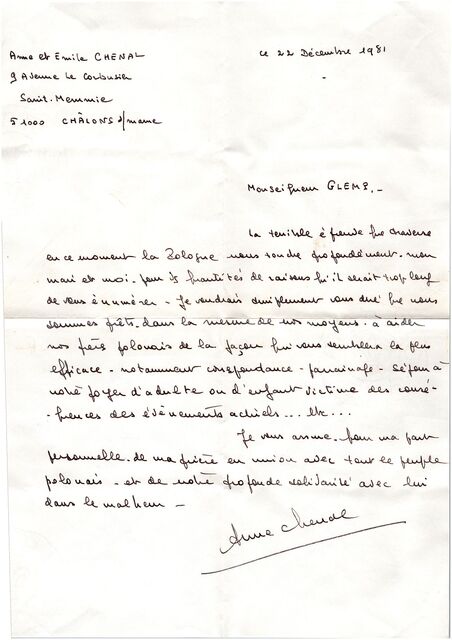 Anne et Emile CHENAL
9 Avenue Le Corbusier
Saint-Memmie
51000 CHÂLONS s/marne
ce 22 Décembre 1981
Monseigneur GLEMP,-
La terrible épreuve que traverse
en ce moment la Pologne nous touche profondément - mon
mari et moi - pour des quantités de raisons qu'il serait trop long
de vous énumérer - Je voudrais simplement vous dire que nous
sommes prêts, dans la mesure de nos moyens - à aider
nos frères polonais de la façon qui vous semblera la plus
efficace - notamment correspondance - parrainage - séjour à
notre foyer d'adulte ou d'enfant victime des consé-
-quences des évènements actuels... etc...
Je vous assure - pour ma part
personnelle - de ma prière en union avec tout le peuple
polonais - et de notre profonde solidarité avec lui
dans le malheur -
Anne Chenal